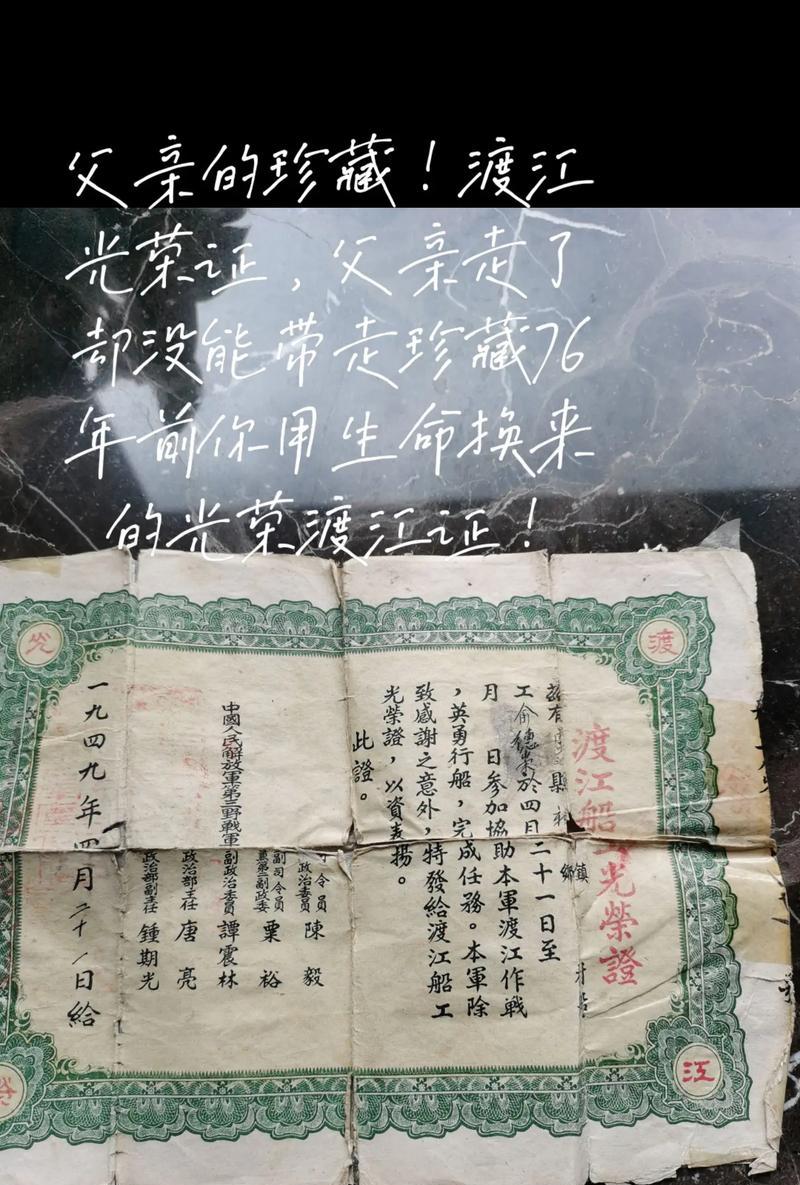 父亲的珍藏！渡江
光荣证，父亲走了
却没能带走珍藏76
年前你用生命换来
的光荣渡江证！
光
渡
渡江船工光榮證
茲有 縣 鎮
鄉 村船
工俞德 於四月二十一日至
月 日參加協助本軍渡江作戰
，英勇行船，完成任務。本軍除
致感謝之意外，特發給渡江船工
光榮證，以資表揚。
此證。
司令員 陳毅
政治委員
副司令員 粟裕
第二副政委
中國人民解放軍第三野戰軍副政治委員 譚震林
政治部主任 唐亮
政治部副主任 鍾期光
一九四九年四月二十 日給
江